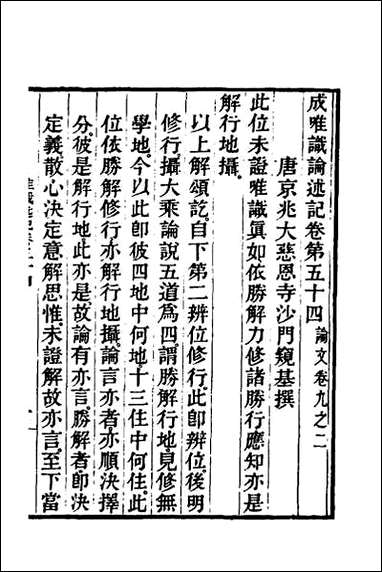 成唯識論述記卷第五十四 論文卷九之二
唐京兆大慈恩寺沙門窺基撰
此位未證唯識眞如依勝解力修諸勝行應知亦是
解行地攝。
以上解頌訖。自下第二辨位修行。此卽辨位。後明
修行攝大乘論說五道爲四。謂勝解行地。見修無
學地。今以此卽彼四地中何地十三住中何住。此
位依勝解修行亦解行地攝。論言亦者。亦順決擇
分。彼是解行地此亦是。故論有亦言。勝解者卽決
定義散心決定意解思惟。未證解故亦言。至下當